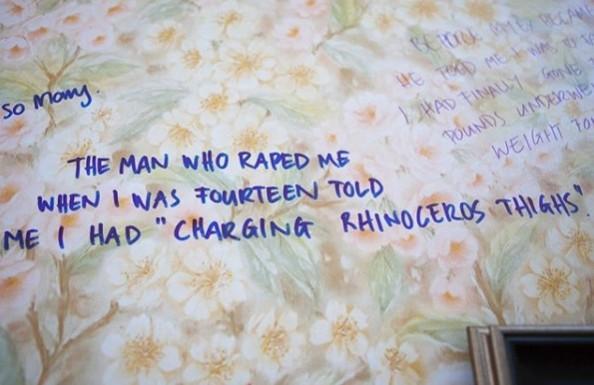 so many.
THE MAN WHO RAPED ME
WHEN I WAS FOURTEEN TOLD
ME I HAD "CHARGING RHINOCEROS THIGHS".
HE TOLD ME I WAS TO
I HAD FINALLY GONE
POUNDS UNDERWE
WEIGHT FO